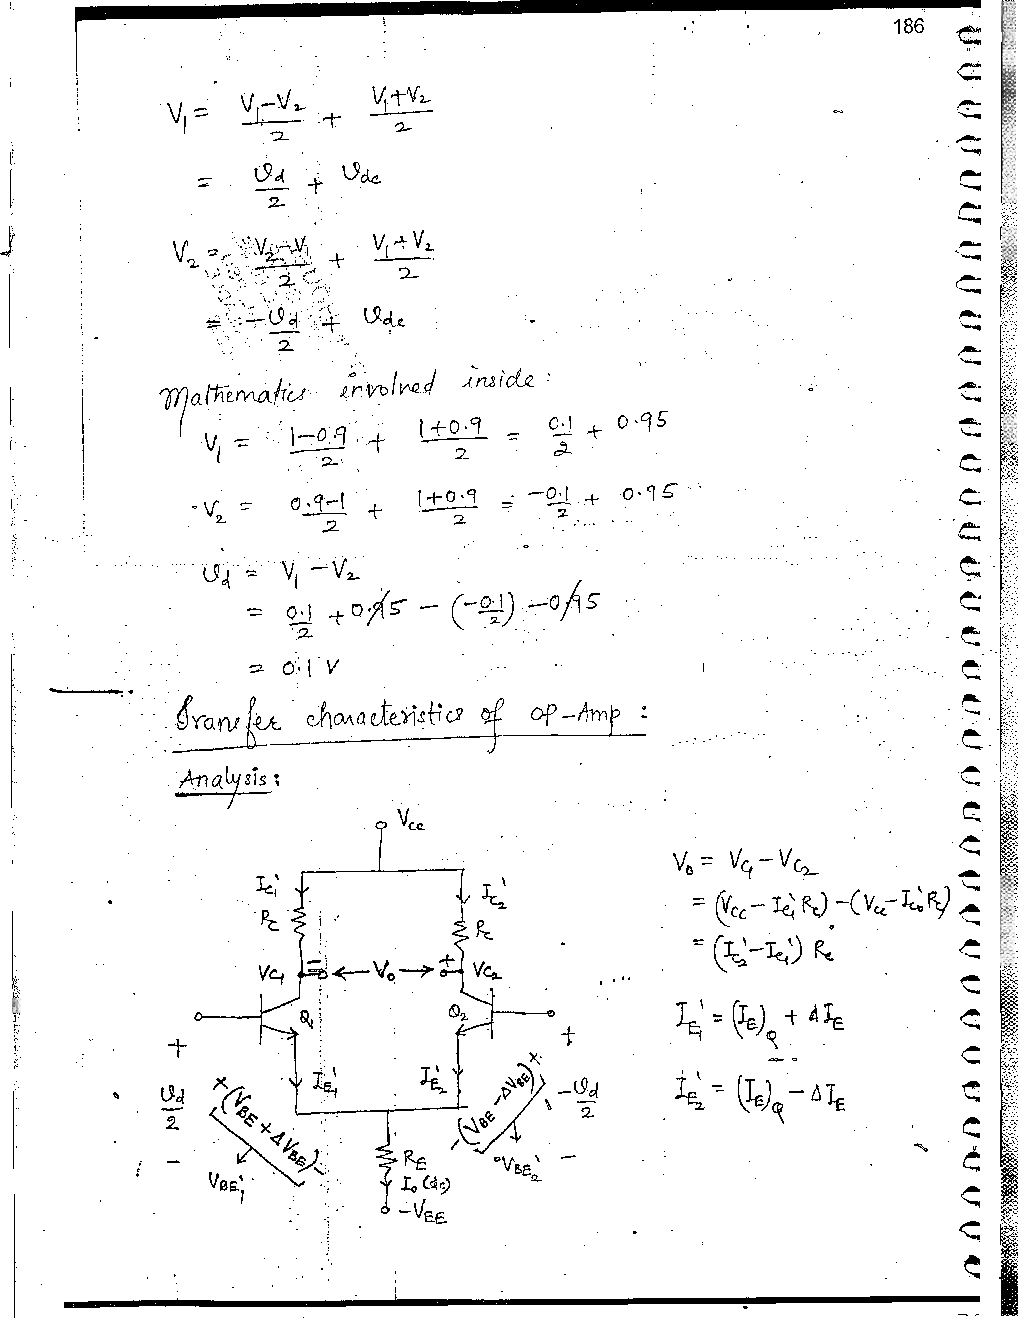 186
V₁ = (V₁-V₂)/2 + (V₁+V₂)/2
= υd/2 + υdc
V₂ = (V₂-V₁)/2 + (V₁+V₂)/2
= -υd/2 + υdc
Mathematics involved inside :
V₁ = (1-0.9)/2 + (1+0.9)/2 = 0.1/2 + 0.95
V₂ = (0.9-1)/2 + (1+0.9)/2 = -0.1/2 + 0.95
υd = V₁ - V₂
= 0.1/2 + 0.95 - (-0.1/2) - 0.95
= 0.1 V
Transfer characteristics of OP-Amp :
Analysis :
Vcc
IC₁' IC₂'
RC RC
VC₁ - Vo + VC₂
Q₁ Q₂
+ +
IE₁' IE₂'
υd/2 -υd/2
+(VBE + ΔVBE)- -(VBE - ΔVBE)+
VBE₁' VBE₂'
- -
RE
Io (dc)
-VEE
Vo = VC₁ - VC₂
= (VCC - IC₁' RC) - (VCC - IC₂' RC)
= (IC₂' - IC₁') RC
IE₁' = (IE)Q + ΔIE
IE₂' = (IE)Q - ΔIE